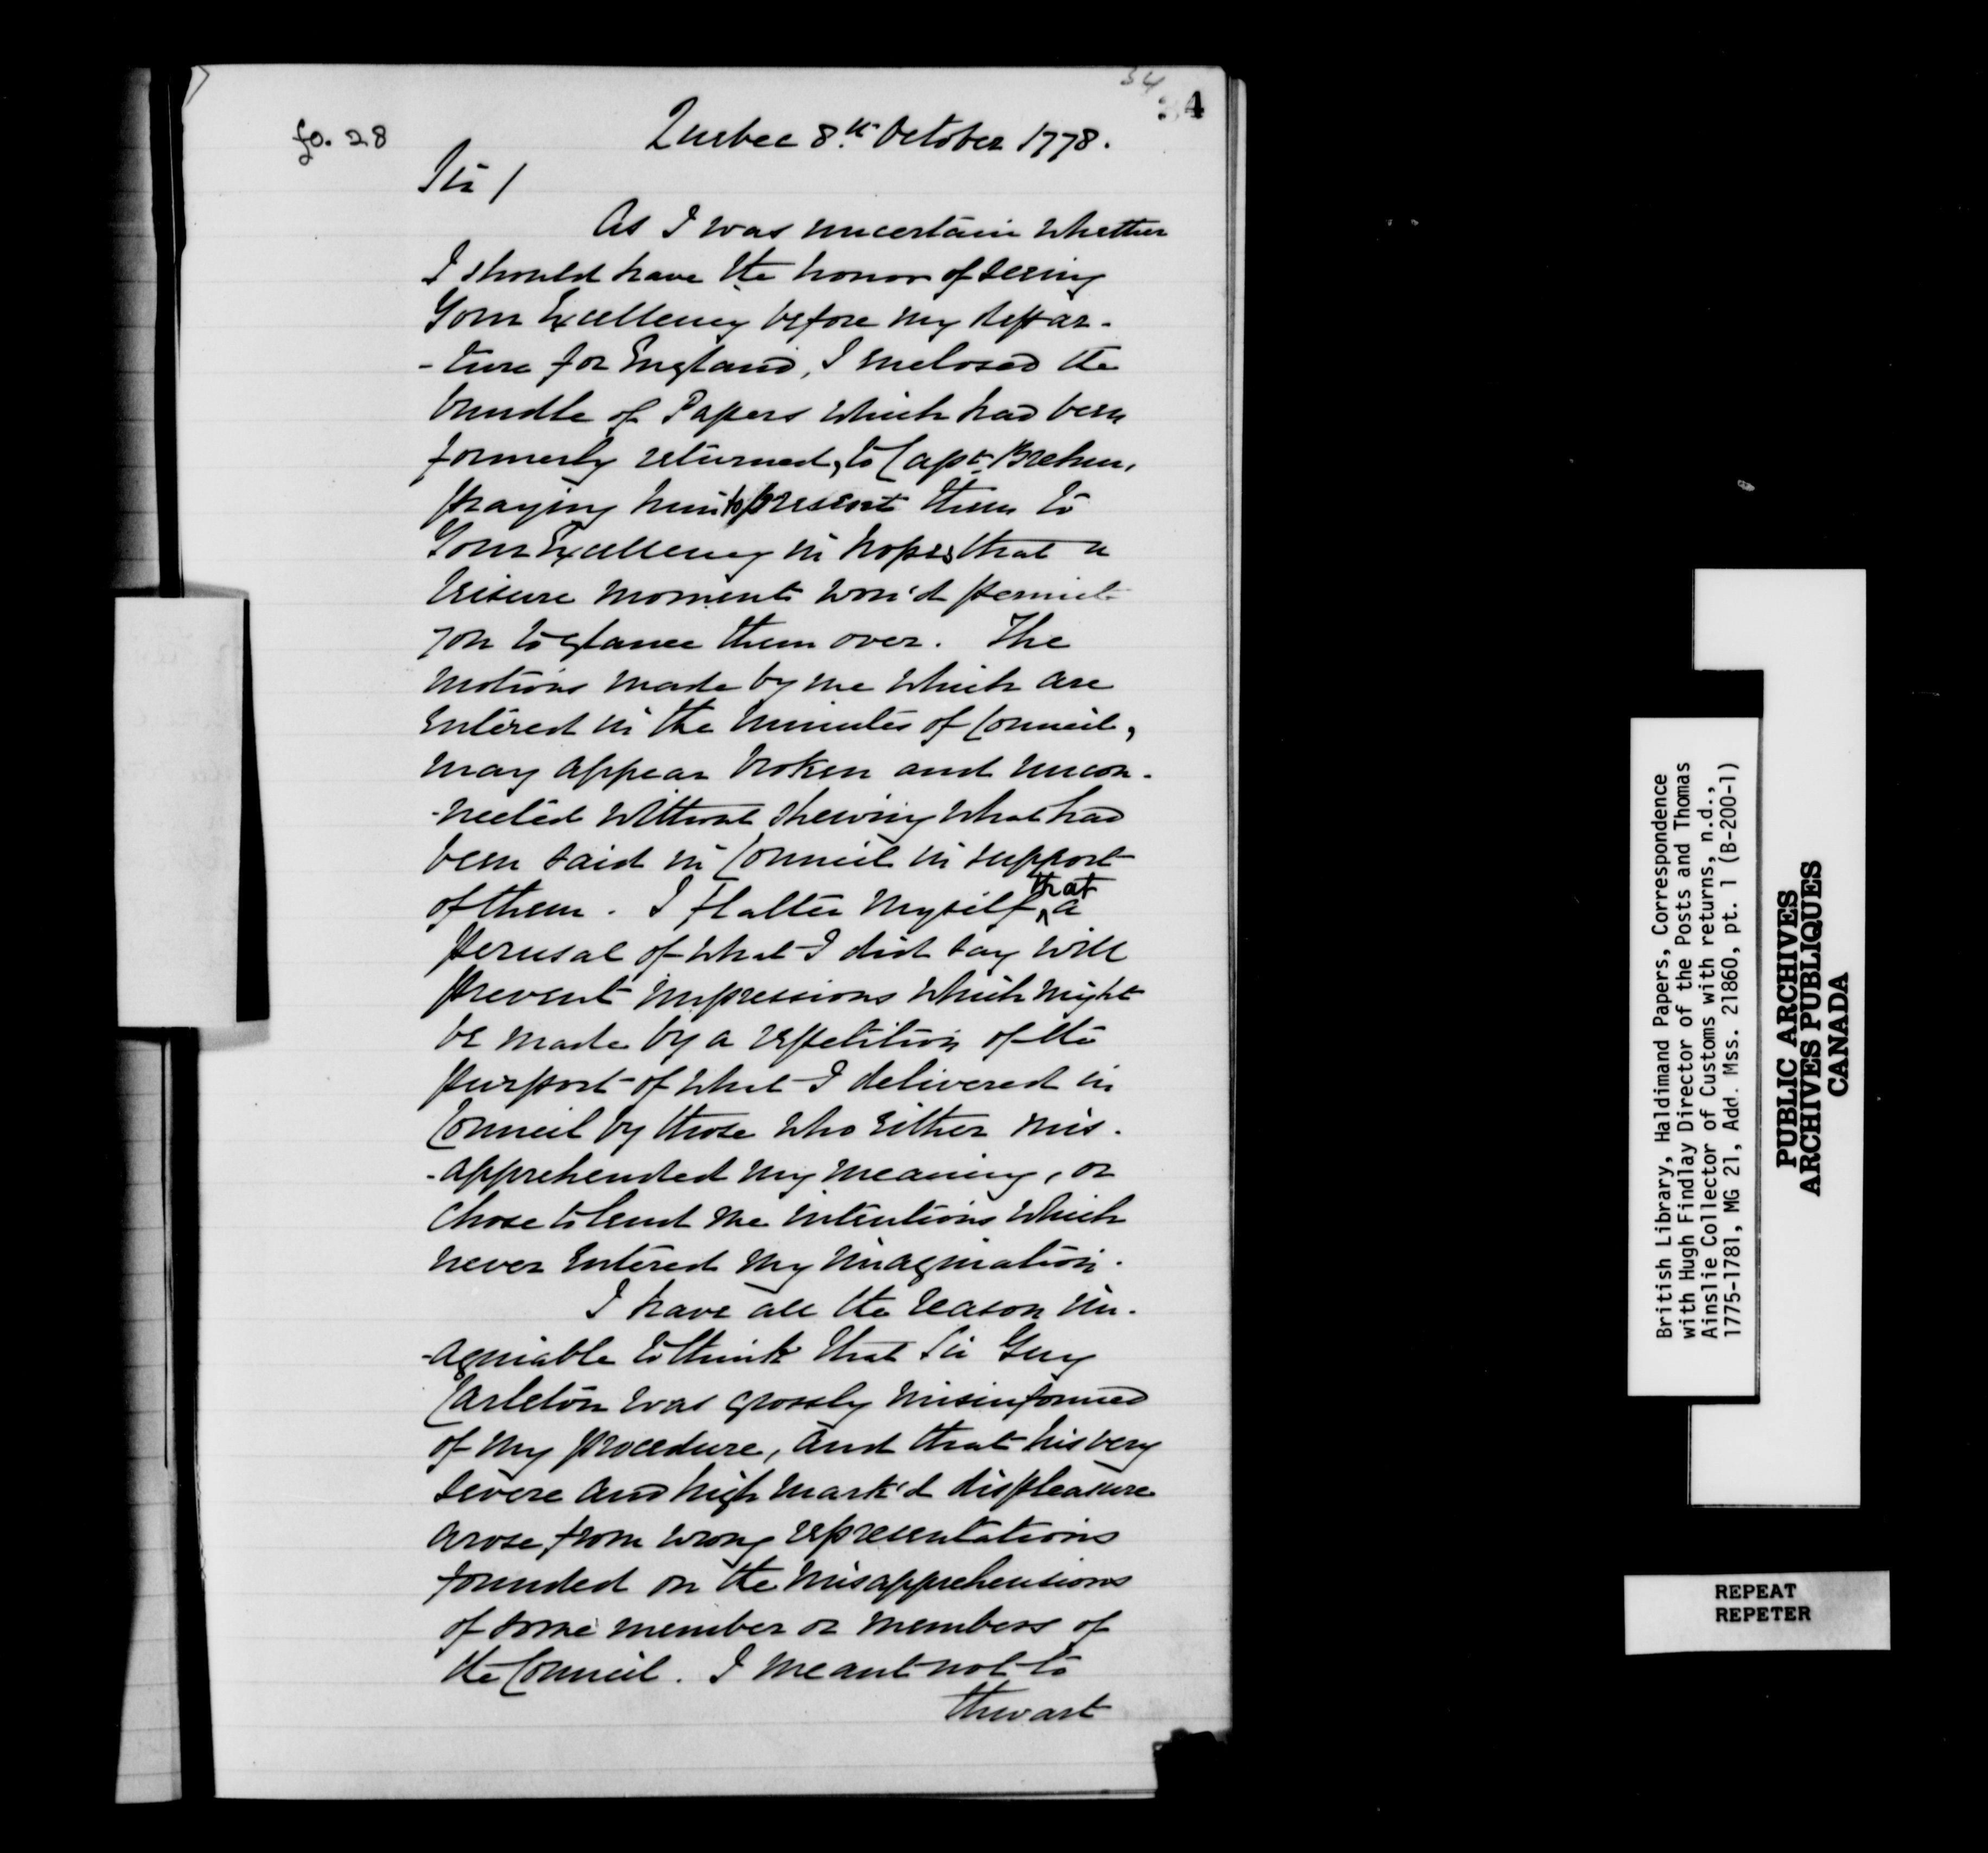 34
34
fo. 28
Quebec 8.th October 1778.
Sir /
As I was uncertain whether
I should have the honor of seeing
Your Excellency before my depar-
-ture for England, I enclosed the
bundle of Papers which had been
formerly returned, to Capt. Brehm,
praying him to present them to
Your Excellency in hopes that a
leisure moment wou'd permit
you to glance them over. The
motions made by me which are
entered in the minutes of Council,
may appear broken and uncon-
-nected without shewing what had
been said in Council in support
of them. I flatter myself, that a
perusal of what I did say will
prevent impressions which might
be made by a repetition of the
purport of what I delivered in
Council by those who either mis-
-apprehended my meaning, or
chose to lend me intentions which
never entered my imagination.
I have all the reason im-
-aginable to think that Sir Guy
Carleton was grossly misinformed
of my procedure, and that his very
severe and high mark'd displeasure
arose from wrong representations
founded on the misapprehensions
of some member or members of
the Council. I meant not to
thwart
British Library, Haldimand Papers, Correspondence
with Hugh Findlay Director of the Posts and Thomas
Ainslie Collector of Customs with returns, n.d.,
1775-1781, MG 21, Add. Mss. 21860, pt. 1 (B-200-1)
PUBLIC ARCHIVES
ARCHIVES PUBLIQUES
CANADA
REPEAT
REPETER